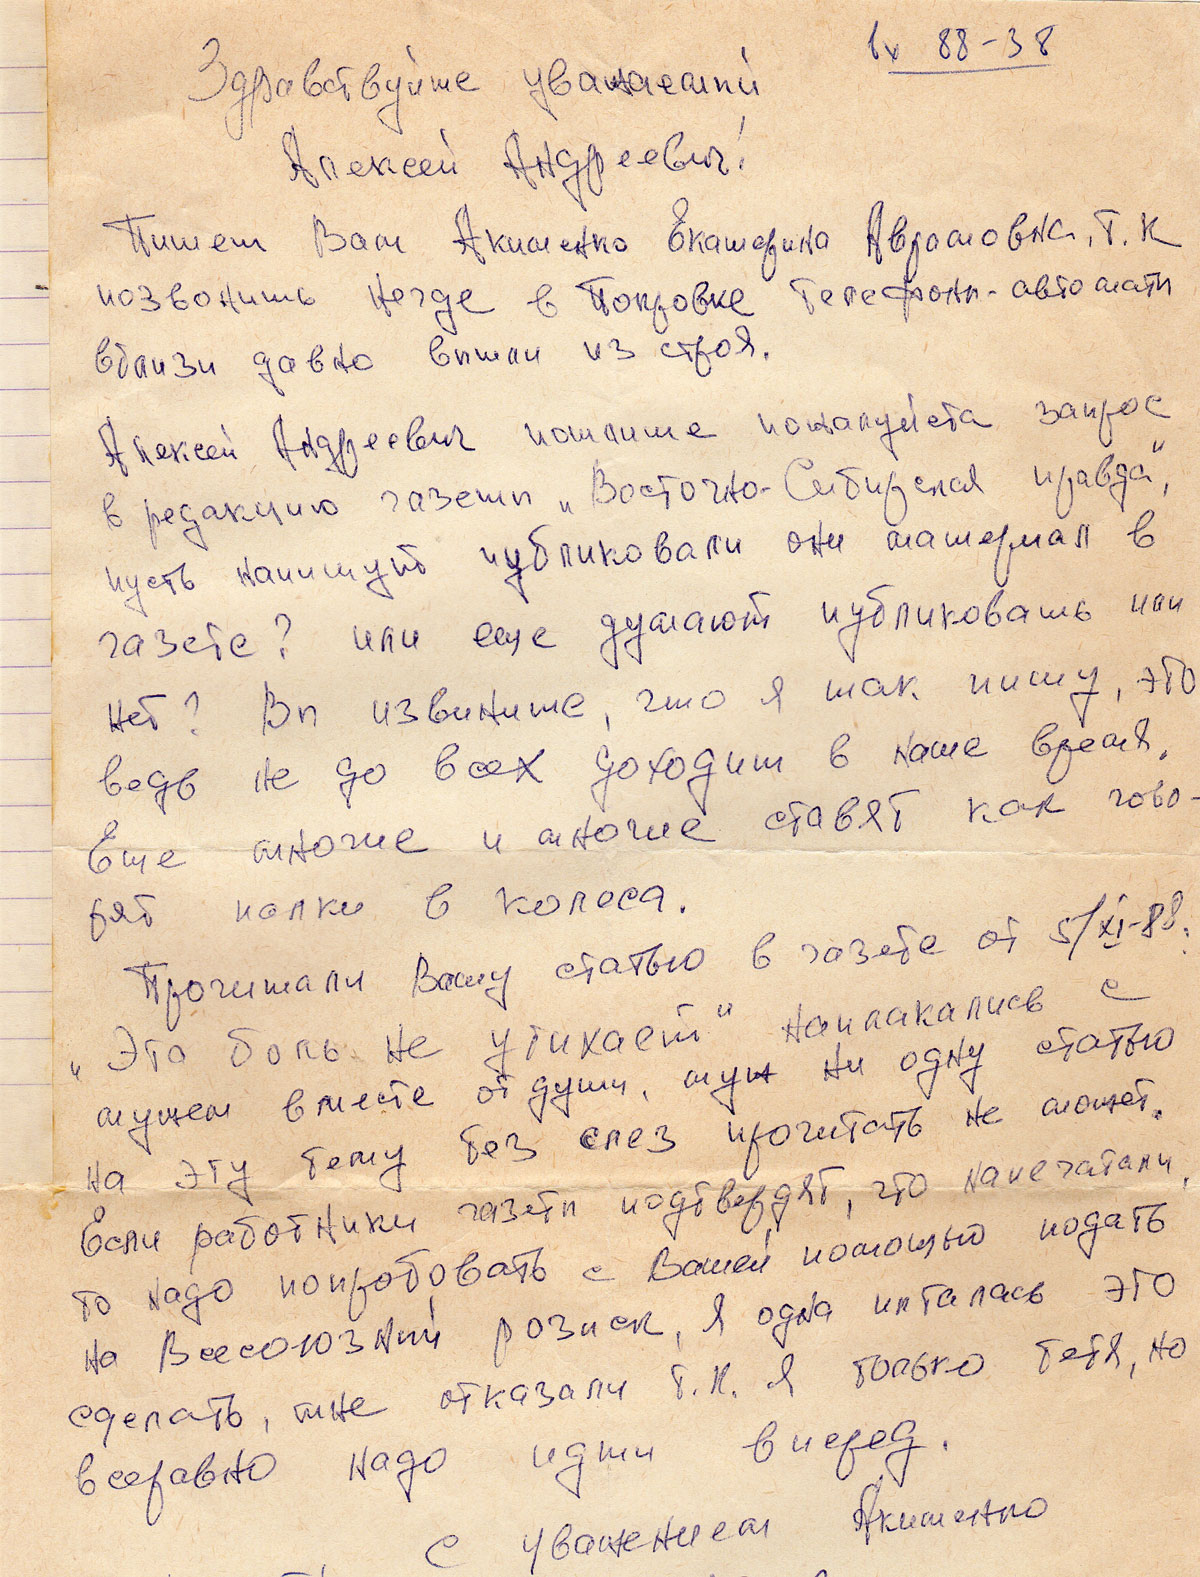 вх 88-38
Здравствуйте уважаемый
Алексей Андреевич!
Пишет Вам Акименко Екатерина Аврамовна, т.к
позвонить негде в Покровке телефоны-автоматы
вблизи давно вышли из строя.
Алексей Андреевич пошлите пожалуйста запрос
в редакцию газеты „Восточно-Сибирская правда",
пусть напишут публиковали они материал в
газете? или еще думают публиковать или
нет? Вы извините, что я так пишу, это
ведь не до всех доходит в наше время.
Еще многие и многие ставят как гово-
рят палки в колеса.
Прочитали Вашу статью в газете от 5/XI-88.
„Эта боль не утихает" наплакались с
мужем вместе от души, муж ни одну статью
на эту тему без слез прочитать не может.
Если работники газеты подтвердят, что напечатали,
то надо попробовать с Вашей помощью подать
на Всесоюзный розыск, я одна пыталась это
сделать, мне отказали т.к. я только тетя, но
всеравно надо идти вперед.
с уважением Акименко